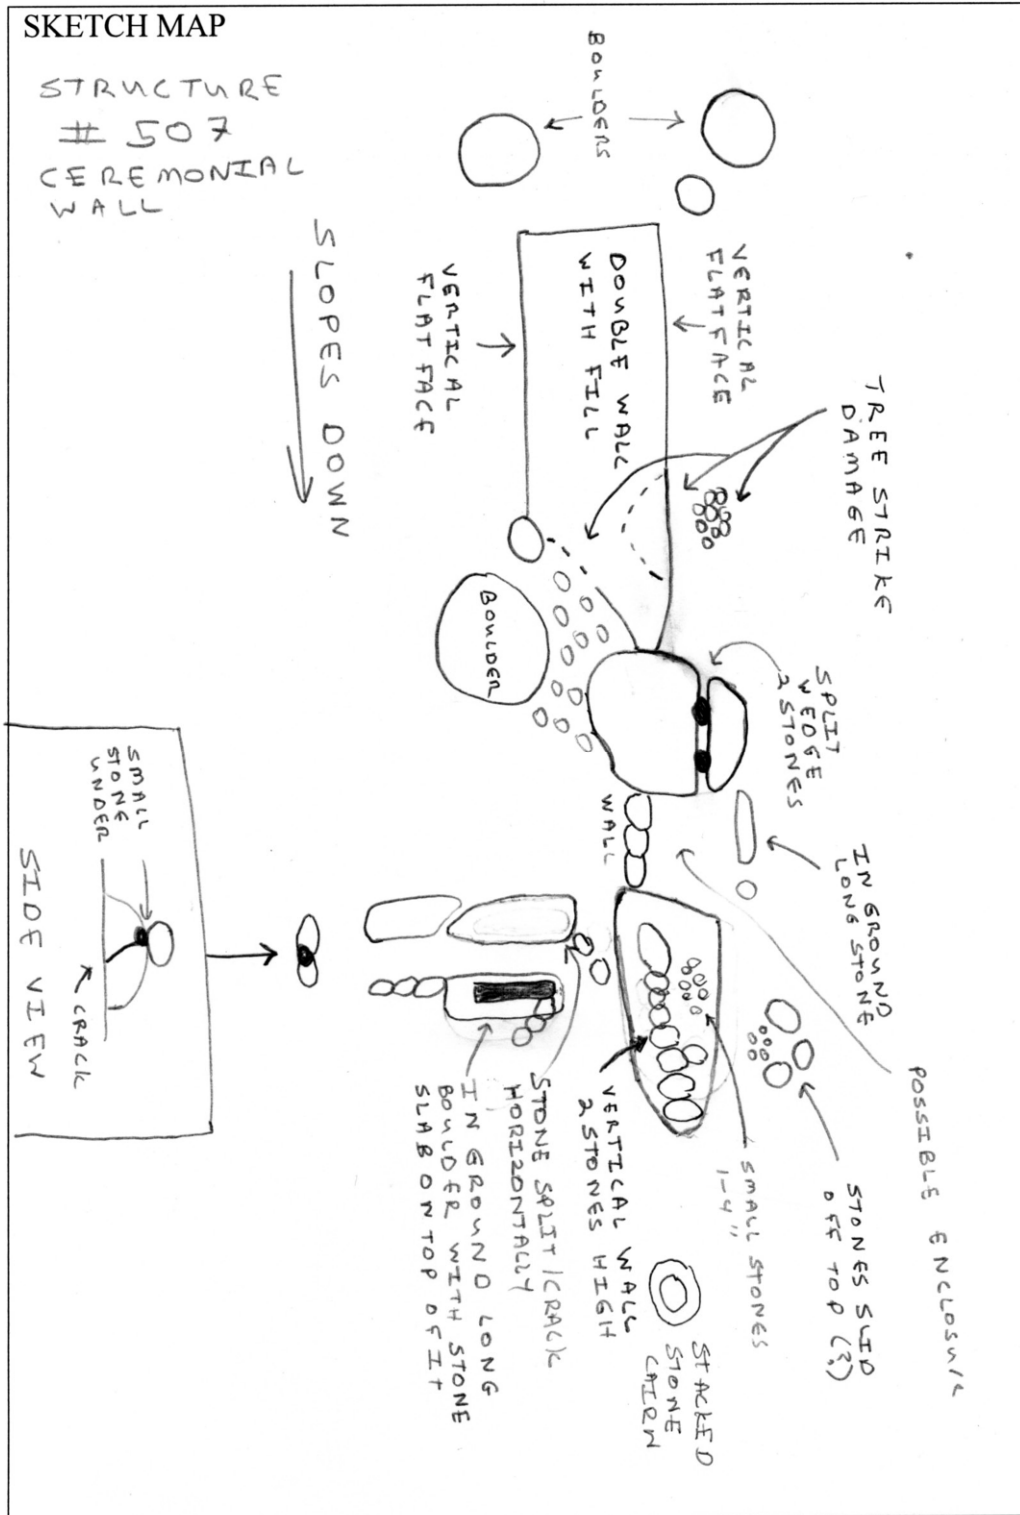 SKETCH MAP
STRUCTURE
# 507
CEREMONIAL
WALL
BOULDERS
SLOPES DOWN
VERTICAL
FLAT FACE
DOUBLE WALL
WITH FILL
VERTICAL
FLAT FACE
TREE STRIKE
DAMAGE
BOULDER
SPLIT
WEDGE
2 STONES
WALL
IN GROUND
LONG STONE
POSSIBLE ENCLOSURE
STONES SLID
OFF TOP (?)
SMALL STONES
1-4"
VERTICAL WALL
2 STONES HIGH
STACKED
STONE
CAIRN
STONE SPLIT/CRACK
HORIZONTALLY
IN GROUND LONG
BOULDER WITH STONE
SLAB ON TOP OF IT
SMALL
STONE
UNDER
CRACK
SIDE VIEW